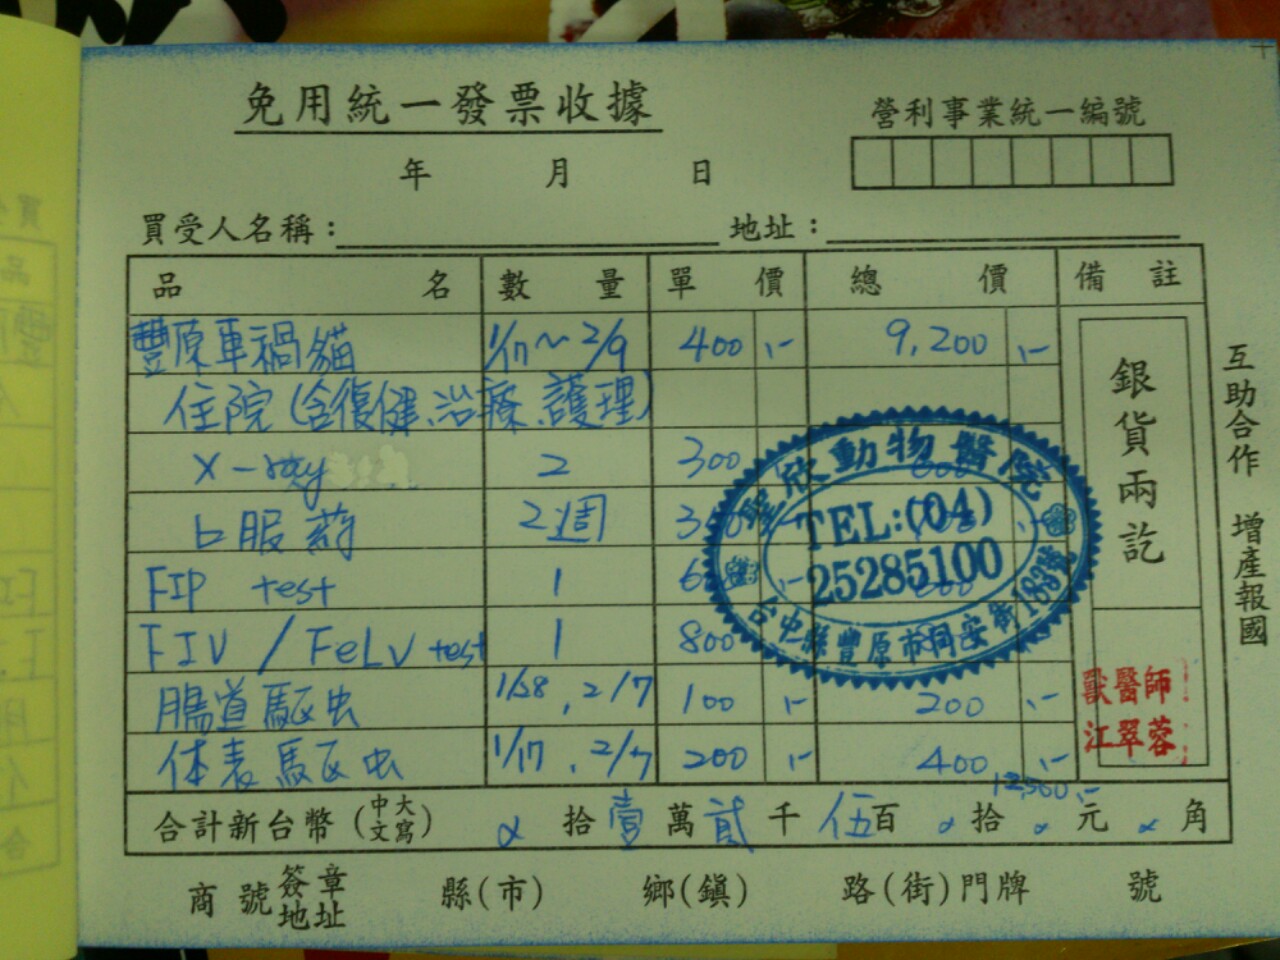 免用統一發票收據
營利事業統一編號
年 月 日
買受人名稱： 地址：
品名 數量 單價 總價 備註
豐原車禍貓 1/17~2/9 400 ,- 9,200 ,-
住院(含復健、治療、護理)
X-ray 2 300 600
口服葯 2週
FIP test 1
FIV / FeLV test 1 800
腸道驅虫 1/28 , 2/7 100 ,- 200 ,-
体表驅虫 1/17 , 2/7 200 ,- 400 ,-
12,500 ,-
合計新台幣(中文大寫) 拾壹萬貳千伍百 拾 元 角
商號簽章地址 縣(市) 鄉(鎮) 路(街)門牌 號
銀貨兩訖
獸醫師
江翠蓉
互助合作 增產報國
聖欣動物醫院
TEL:(04)
25285100
台中縣豐原市同安街183號